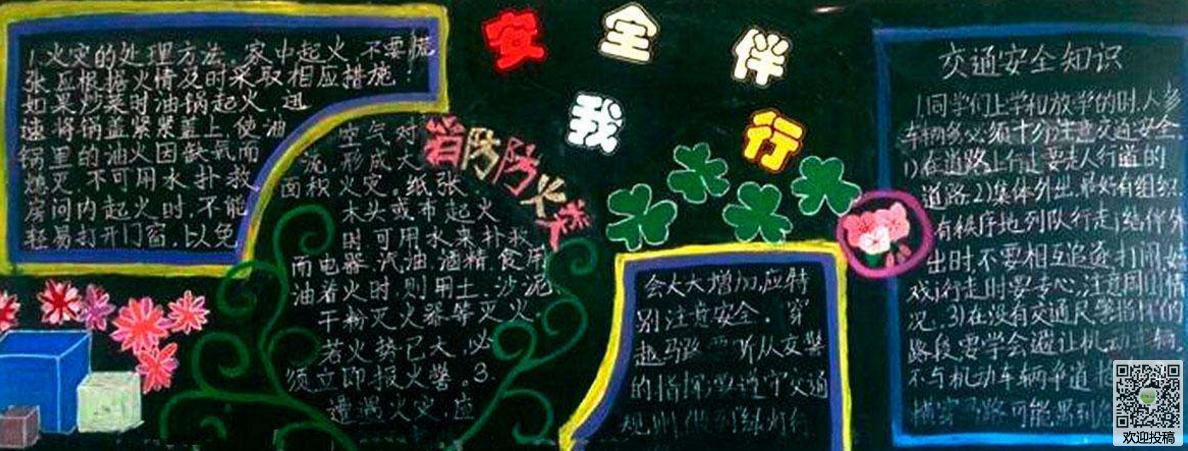 安全伴
我行
消防防火类
1.火灾的处理方法。家中起火,不要慌
张应根据火情及时采取相应措施:
如果炒菜时油锅起火,迅
速将锅盖紧紧盖上,使油
锅里的油火因缺氧而
熄灭,不可用水扑救
房间内起火时,不能
轻易打开门窗,以免
空气对
流,形成大
面积火灾。纸张
木头或布起火
时,可用水来扑救,
而电器.汽油.酒精.食用
油着火时,则用土.沙泥.
干粉灭火器等灭火.
若火势已大,必
须立即报火警。3.
遭遇火灾,应
会大大增加,应特
别注意安全。穿
越马路 听从交警
的指挥 要遵守交通
规则
交通安全知识
1同学们上学和放学的时,人多
车辆多 须十分注意交通安全
1)在道路上行走要走人行道的
道路.2)集体外出,最好有组织
有秩序地列队行走;结伴外
出时,不要相互追逐.打闹.嬉
戏;行走时要专心,注意周围情
况.3)在没有交通民警指挥的
路段,要学会避让机动车辆
不与机动车辆争道
横穿 路可能遇到
欢迎投稿